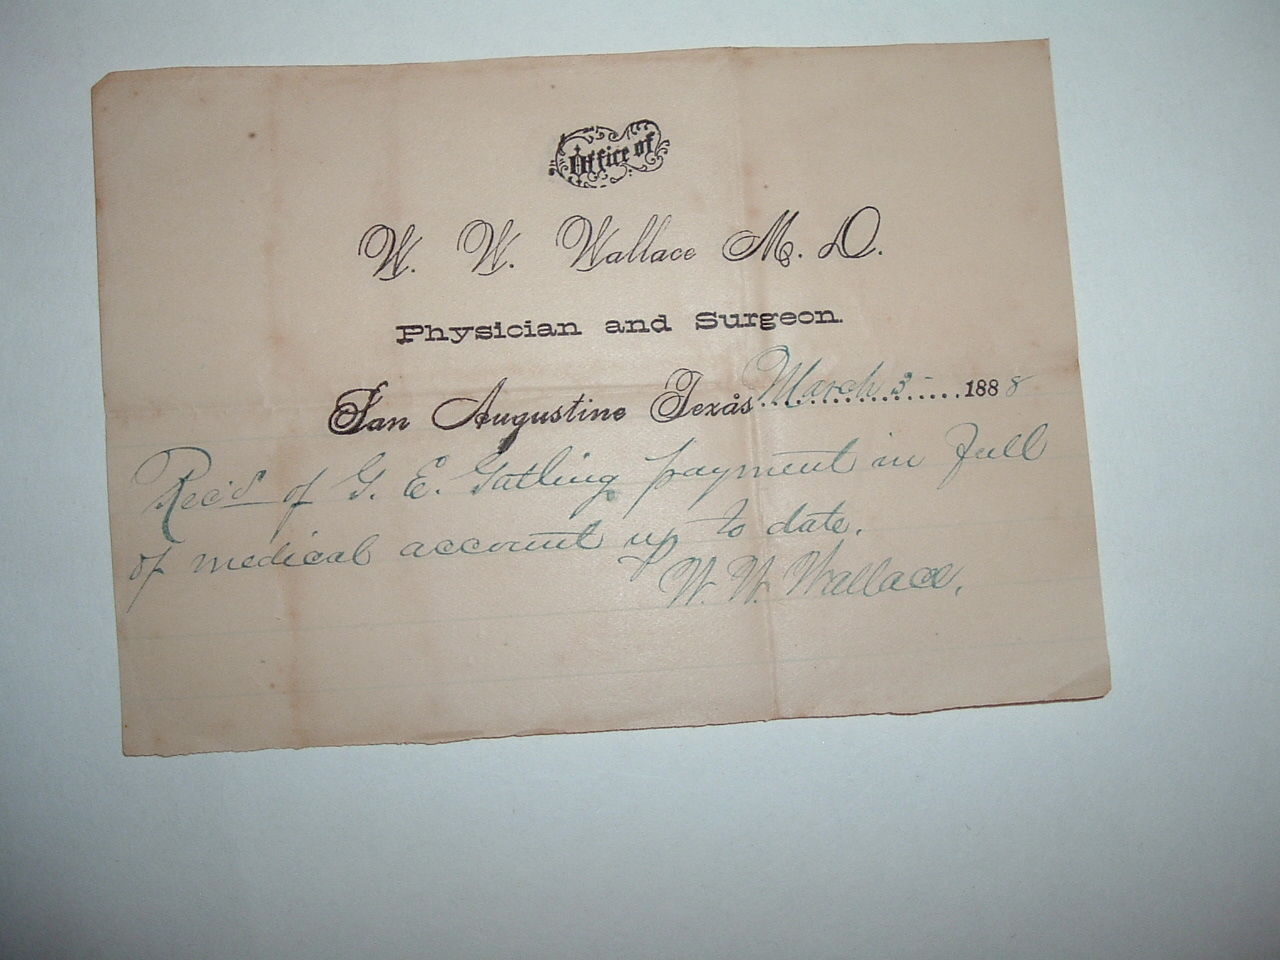 Office of
W. W. Wallace M. D.
Physician and Surgeon.
San Augustine Texas. March 3- 1888
Rec'd of G. E. Gatling payment in full
of medical account up to date.
W. W. Wallace.